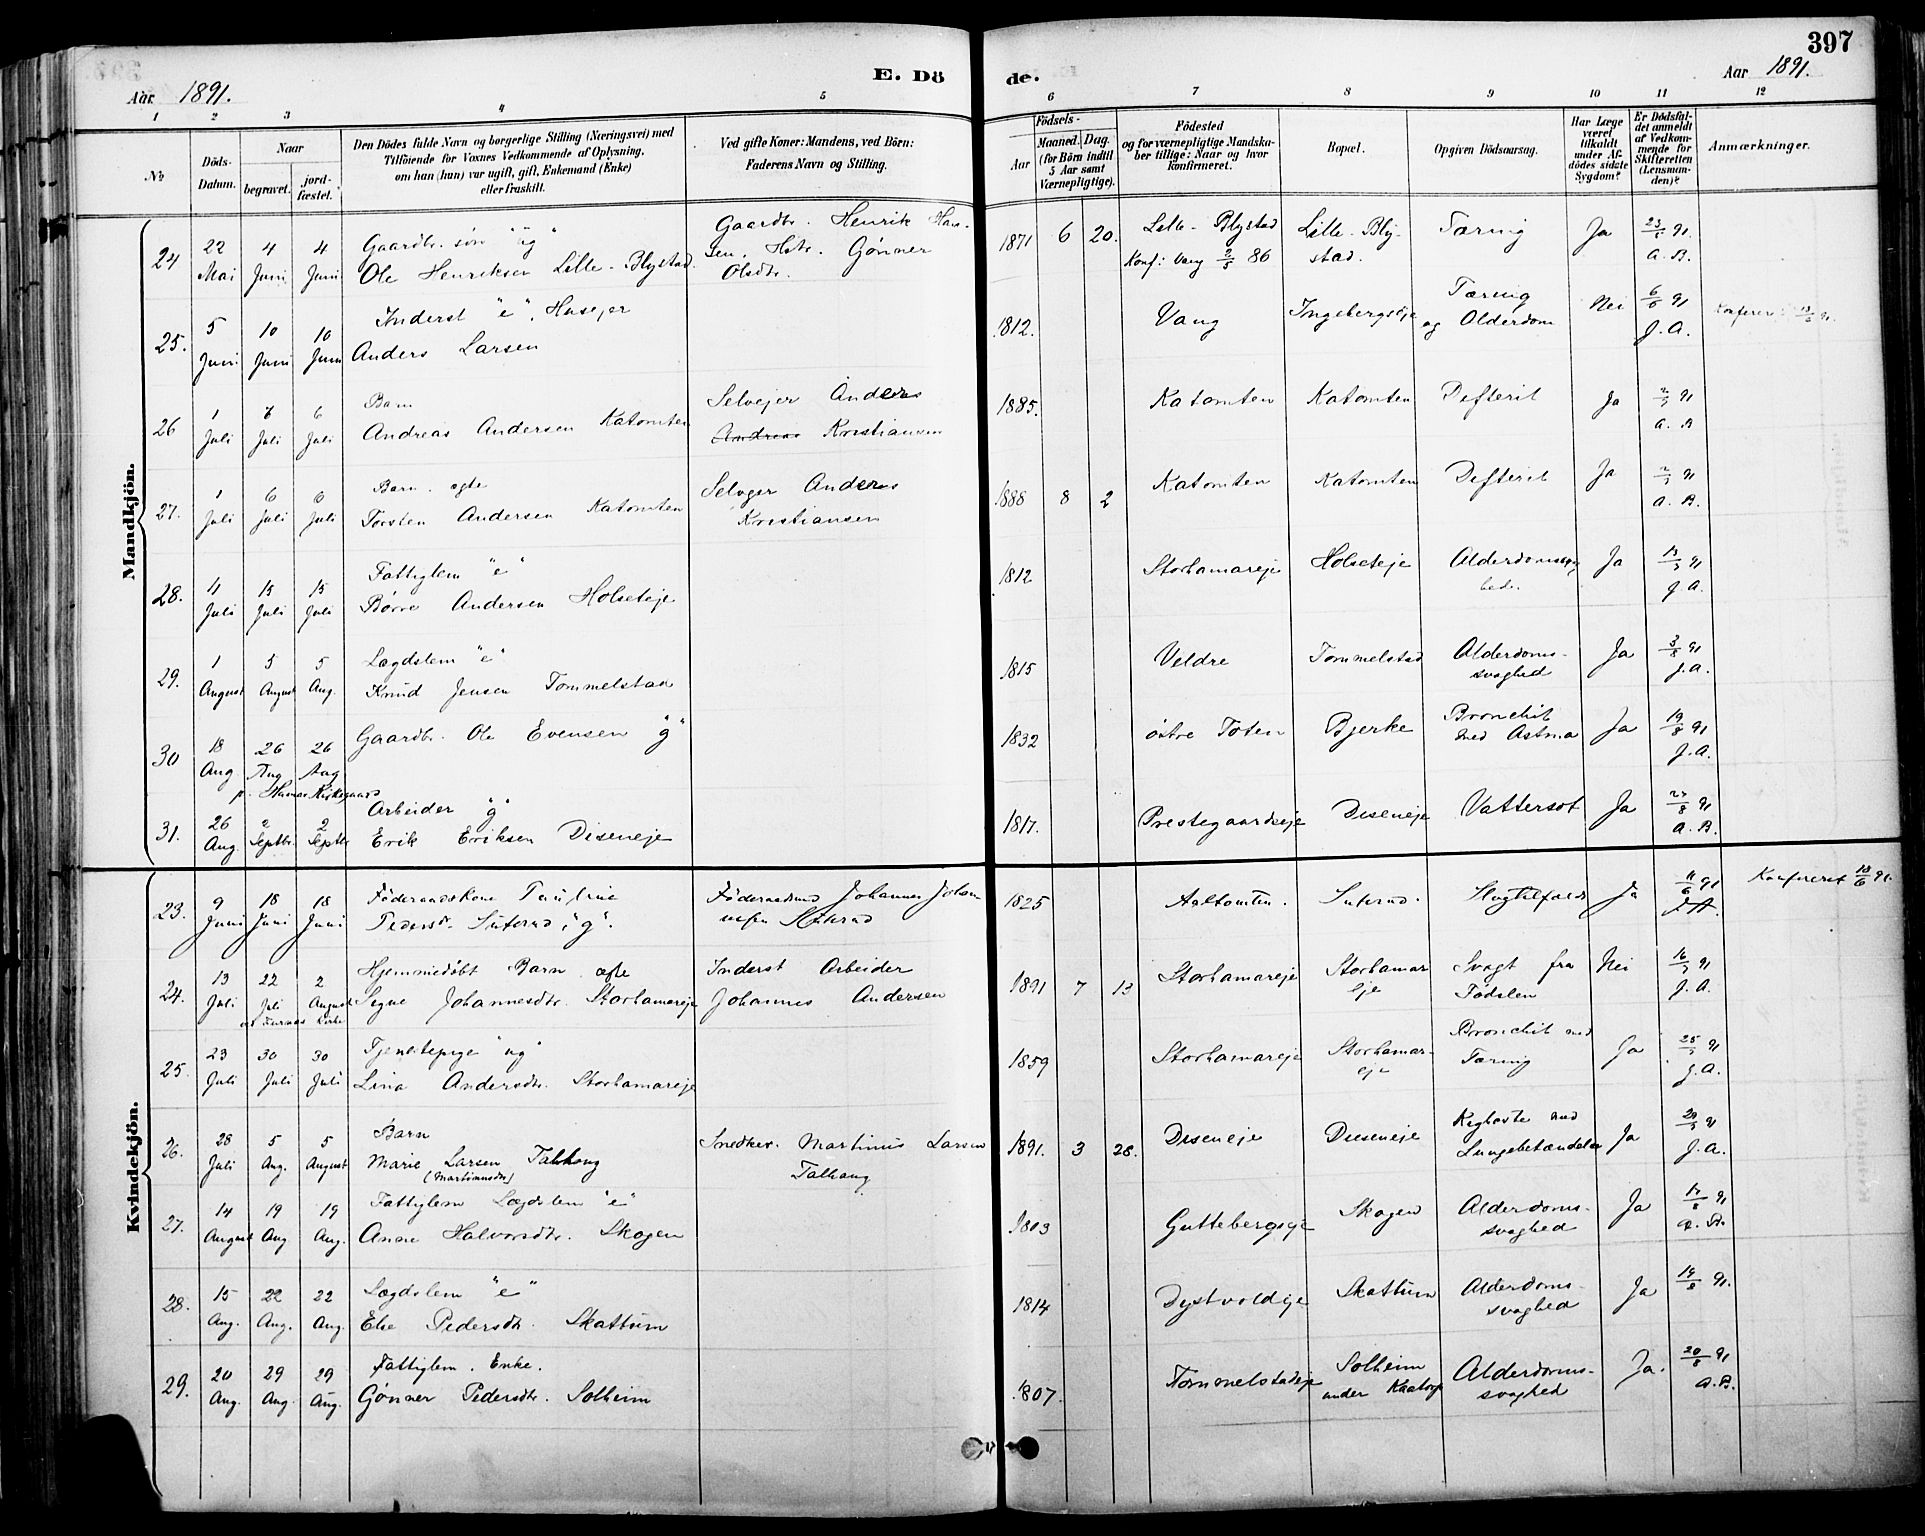 397
Aar 1891.
E. Dö
de.
Aar 1891.
1 2 3 4 5 6 7 8 9 10 11 12
No
Döds-Datum.
Naar
begravet.
jord-fæstet.
Den Dödes fulde Navn og borgerlige Stilling (Næringsvei) med
Tilföiende for Voxnes Vedkommende af Oplysning,
om han (hun) var ugift, gift, Enkemand (Enke)
eller fraskilt.
Ved gifte Koner: Mandens, ved Börn:
Faderens Navn og Stilling.
Födsels-
Aar
Maaned.
Dag.
(for Börn indtil
5 Aar samt
Værnepligtige).
Födested
og for værnepligtige Mandska-
ber tillige: Naar og hvor
konfirmeret.
Bopæl.
Opgiven Dödsaarsag.
Har Læge
været
tilkaldt
under Af-
dödes sidste
Sygdom?
Er Dödsfal-
det anmeldt
af Vedkom-
mende for
Skifteretten
(Lensman-
den)?
Anmærkninger.
Mandkjön.
24 22 Mai 4 Juni 4 Juni Gaardbr. søn "ug" Ole Henriksen Lille-Blystad. Gaardbr. Henrik Hansen. Hstr. Gønner Olsdtr. 1871 6 20. Lille-Blystad Konf: Vang 2/5 86 Lille-Blystad. Tæring Ja 23/5 91. A.B.
25. 5 Juni 10 Juni 10 Juni Inderst "e", Husejer Anders Larsen 1812. Vang Ingebergseje Tæring og Alderdom Nei 6/6 91 J.A. Konferer 13/6 91.
26 1 Juli 6 Juli 6 Juli Barn Andreas Andersen Katomten Selvejer Anders Andreas Kristiansen 1885. Katomten Katomten Defterit Ja 2/7 91 A.B
27. 1 Juli 6 Juli 6 Juli Barn. ægte Torsten Andersen Katomten Selvejer Anders Kristiansen 1888 8 2 Katomten Katomten Defterit Ja 2/7 91 A.B.
28. 11 Juli 15 Juli 15 Juli Fattiglem "e" Børre Andersen Holseteje 1812 Storhamareje Holseteje Ja 13/7 91 J.A.
29. 1 August 5 August 5 Aug. Lægdslem "e" Knud Jensen Tommelstad 1815 Veldre Tommelstad Alderdoms-svaghed Ja 3/8 91 J.A.
30 18 Aug 26 Aug 26 Aug p. Hamar Kirkegaard Gaardbr. Ole Evensen "g" 1832 østre Toten Bjerke Bronchit med Astma Ja 19/8 91 J.A.
31. 26 Aug. 2 Septbr. 2 Septbr Arbeider "g" Erik Eriksen Diseneje 1817. Prestegaardseje Diseneje Vattersot Ja 27/8 91 A.B.
Kvindekjön.
23. 9 Juni 18 Juni 18 Juni Føderaadskone Pauline Pedersdr. Suterud, "g". Føderaadsmd Johannes Johannesen Suterud 1825 Aaltomten. Suterud. Slagtilfælde Ja 11/6 91 J.A. Konfereret 18/6 91.
24. 13 Juli 22 Juli 2 August ved Furnes Kirke Hjemmedøbt Barn. ægte Signe Johannesdtr. Storhamareje Inderst Arbeider Johannes Andersen 1891 7 13 Storhamareje Storhamareje Svagt fra Fødslen Nei 16/7 91 J.A.
25. 23 Juli 30 Juli 30 Juli Tjenestepige "ug" Lina Andersdtr. Storhamareje 1859 Storhamareje Storhamar-eje Bronchit med Tæring Ja 25/7 91 J.A.
26. 28 Juli 5 Aug. 5 August Barn Marie Larsen Talhaug (Martinusdtr) Snedker. Martinus Larsen Talhaug 1891. 3 28. Diseneje Diseneje Kighoste med Lungebetændelse Ja 29/7 91 J.A.
27. 14 August 19 Aug 19 Aug. Fattiglem Lægdslem "e" Anne Halvorsdtr. Skogen 1803 Guttebergseje Skogen Alderdoms-svaghed Ja 17/8 91 A.B.
28. 15 Aug. 22 Aug. 22 Aug. Lægdslem "e" Else Pedersdtr. Skattum 1814 Dystvoldeje Skattum Alderdoms-svaghed Ja 19/8 91.
29. 20 Aug. 29 Aug. 29 Aug. Fattiglem. Enke. Gønner Pedersdtr. Solheim 1807. Tommelstadeje Solheim under Kaatorp Alderdoms-svaghed Ja. 20/8 91 A.B.